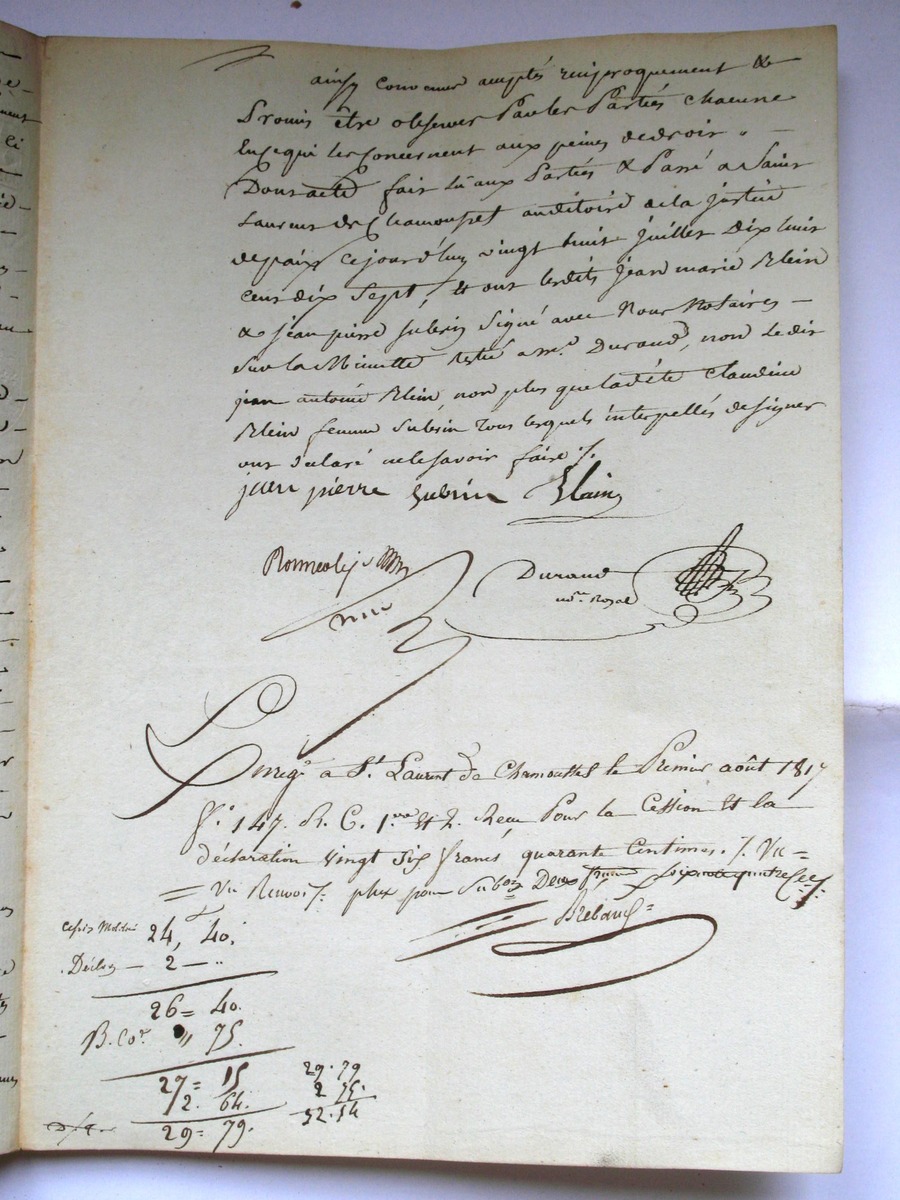 ainsy convenu acceptés reciproquement &
Promis être observer Par les Parties chacune
En ce qui les concernent aux peines de droit. —
Dont acte fait Lu aux Parties & Passé a Saint
Laurent de Chamousset auditoire de la justice
de paix cejourd'huy vingt huit juillet Dix huit
cent dix Sept, Et ont lesdits jean marie Blein
& jean pierre Subrin Signé avec Nous Notaires —
Sur la Minutte restée a me. Durand, non ledit
jean antoine Blein non plus que ladite Claudine
Blein femme Subrin Tous lesquels interpellés de signer
ont declaré ne le savoir faire ./.
jean pierre Subrin Blain
Durand
nore. Royal
Enregé. a St. Laurent de Chamousset le Premier août 1817
f°. 147. R. C. 1ere Et 2. Recu Pour la Cession Et la
déclaration vingt six francs quarante Centimes. /. Un =
= Un Renvoi /. plus pour Subon Deux francs soixante quatre Ces /.
Brébant =
24, 40.
Déclon — 2 — ..
26 = 40.
B. Cor. " 75.
27 = 15
2. 64.
29 = 79.
29. 79
2 75.
32. 54